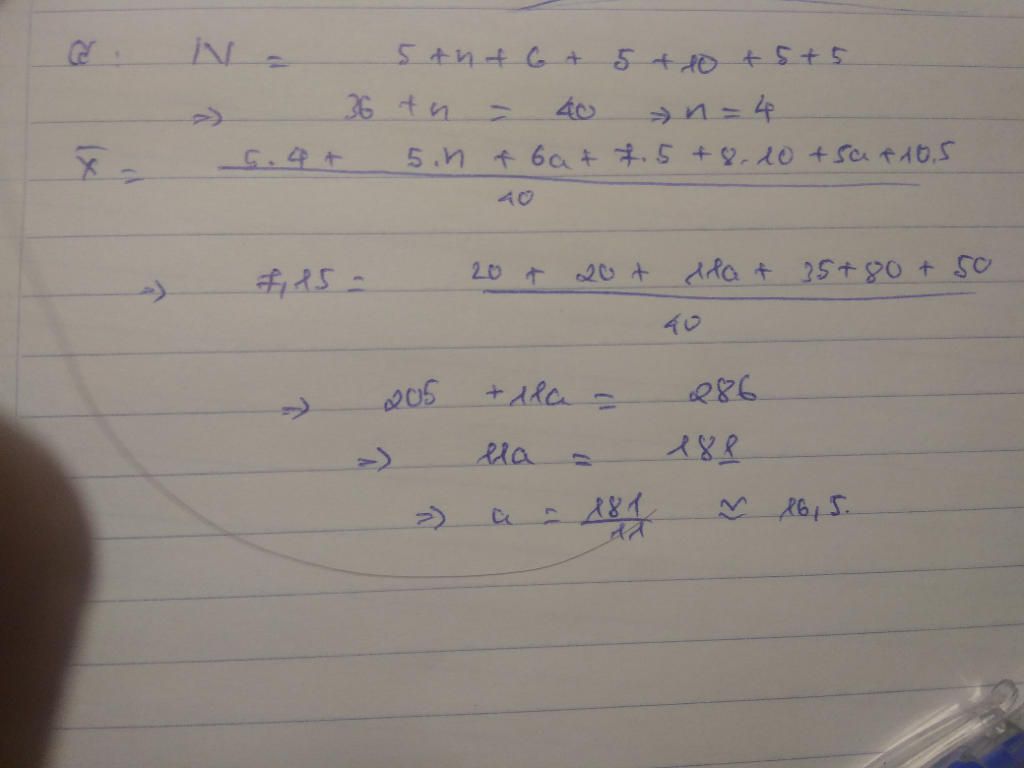 G: N = 5 + n + 6 + 5 + 10 + 5 + 5
=> 36 + n = 40 => n = 4
x̄ = 5.4 + 5.n + 6a + 7.5 + 8.10 + 5a + 10.5
40
=> 7,15 = 20 + 20 + 11a + 35 + 80 + 50
40
=> 205 + 11a = 286
=> 11a = 181
=> a = 181/11 ≅ 16,5.